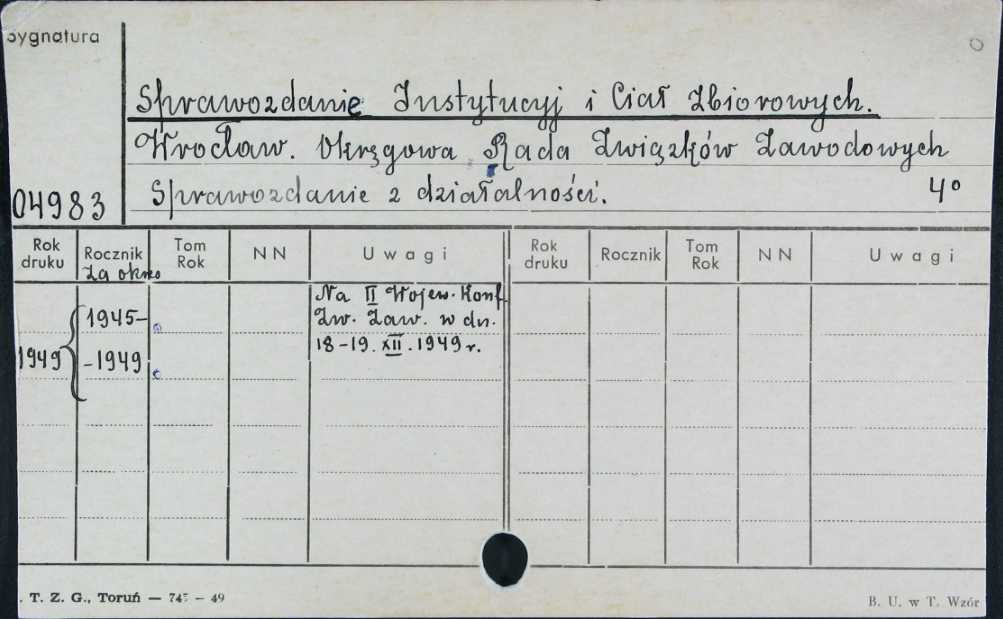 Sygnatura
Sprawozdanie Instytucyj i Ciał Zbiorowych.
Wrocław. Okręgowa Rada Związków Zawodowych
Sprawozdanie z działalności. 4°
04983
Rok druku Rocznik Tom Rok NN Uwagi Rok druku Rocznik Tom Rok NN Uwagi
za okres
1945– Na II Wojew. Konf.
Zw. Zaw. w dn.
1949 –1949 18–19. XII. 1949 r.
. T. Z. G., Toruń — 745 — 49 B. U. w T. Wzór